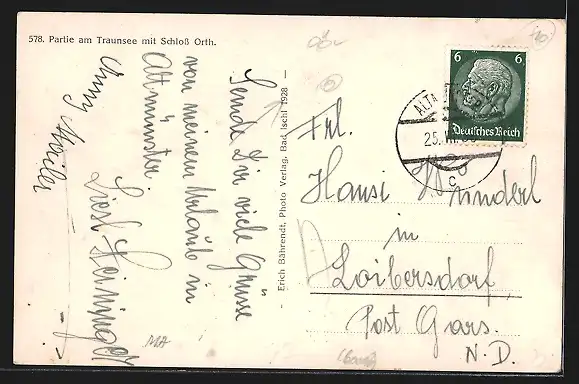 578. Partie am Traunsee mit Schloß Orth.
Sende Dir viele Grüsse
von meinem Urlaub in
Altmünster.
Liesl
Erich Bährendt, Photo Verlag, Bad Ischl 1928
6 6
Deutsches Reich
ALTM
25. VII.
c
Frl.
Hansi Wunderl
in
Loibersdorf,
Post Gars.
N. D.